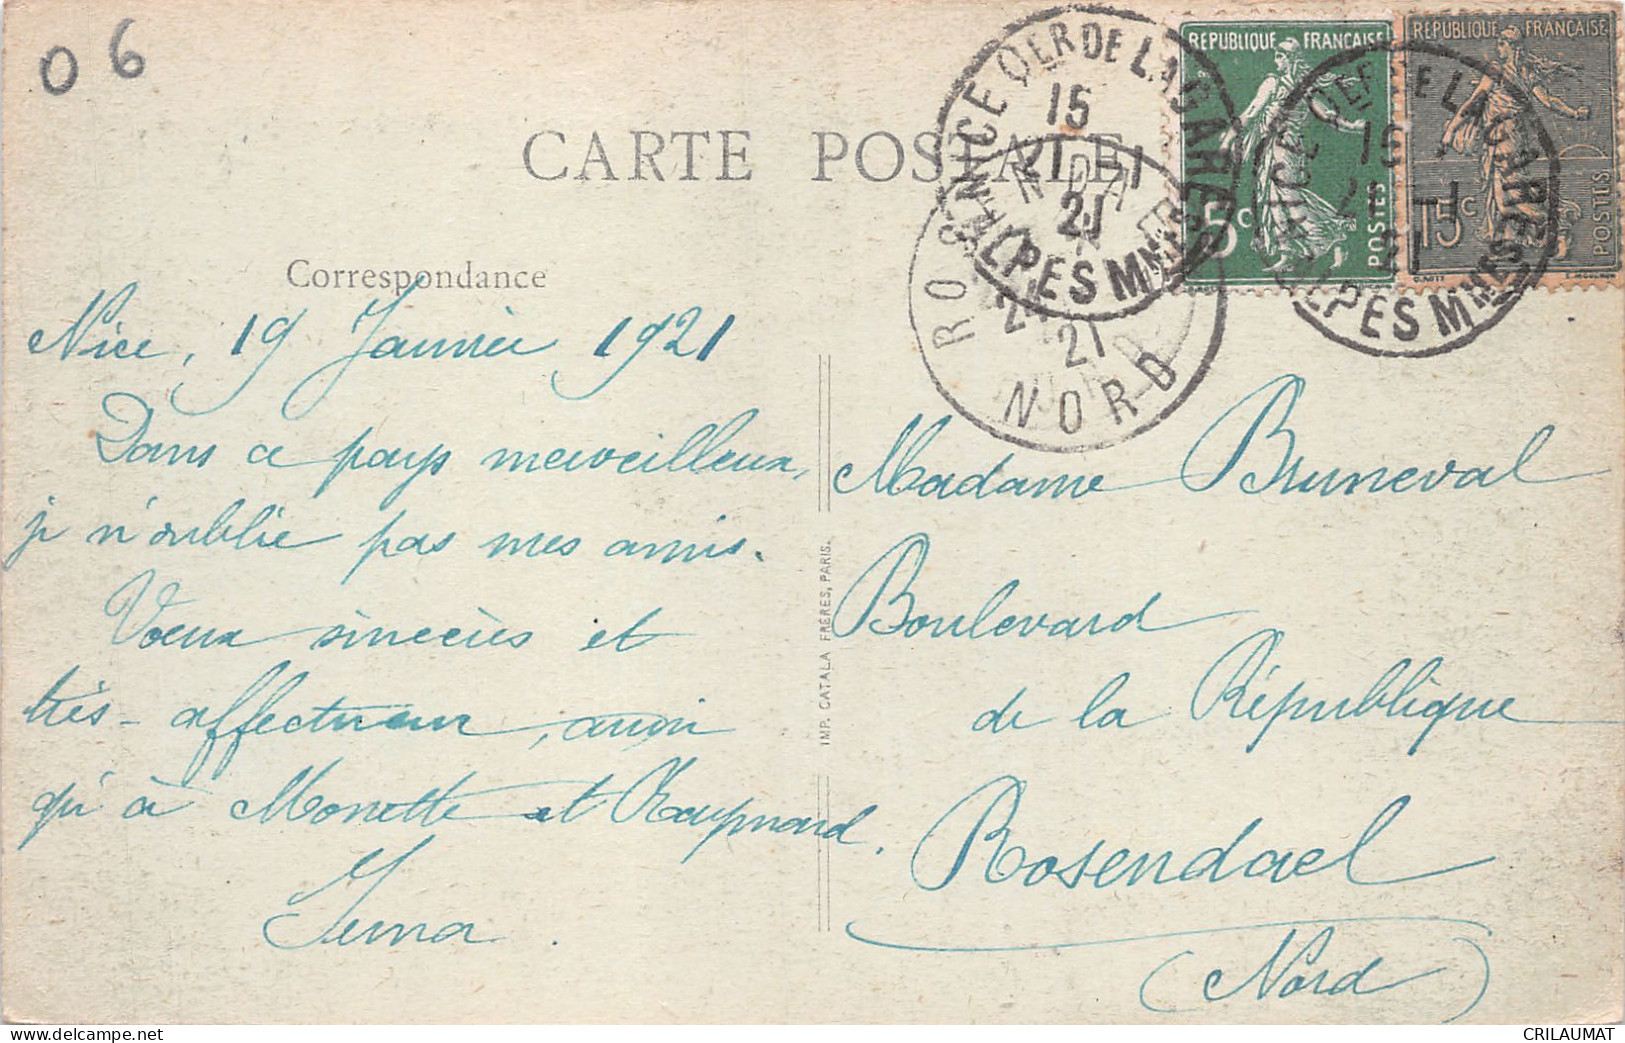 06
CARTE POSTALE
RÉPUBLIQUE FRANÇAISE
5c
POSTES
RÉPUBLIQUE FRANÇAISE
15c
POSTES
NICE QER DE LA GARE
15
21 -1
21
ALPES MMES
NICE QER DE LA GARE
15
21 -1
21
ALPES MMES
ROSENDAEL
21
NORD
Correspondance
Nice, 19 Janvier 1921
Dans ce pays merveilleux,
je n'oublie pas mes amis.
Voeux sincères et
très-affectueux, aussi
qu'à Monette et Raymond.
IMP. CATALA FRÈRES, PARIS.
Madame Bruneval
Boulevard
de la République
Rosendael
(Nord)
CRILAUMAT